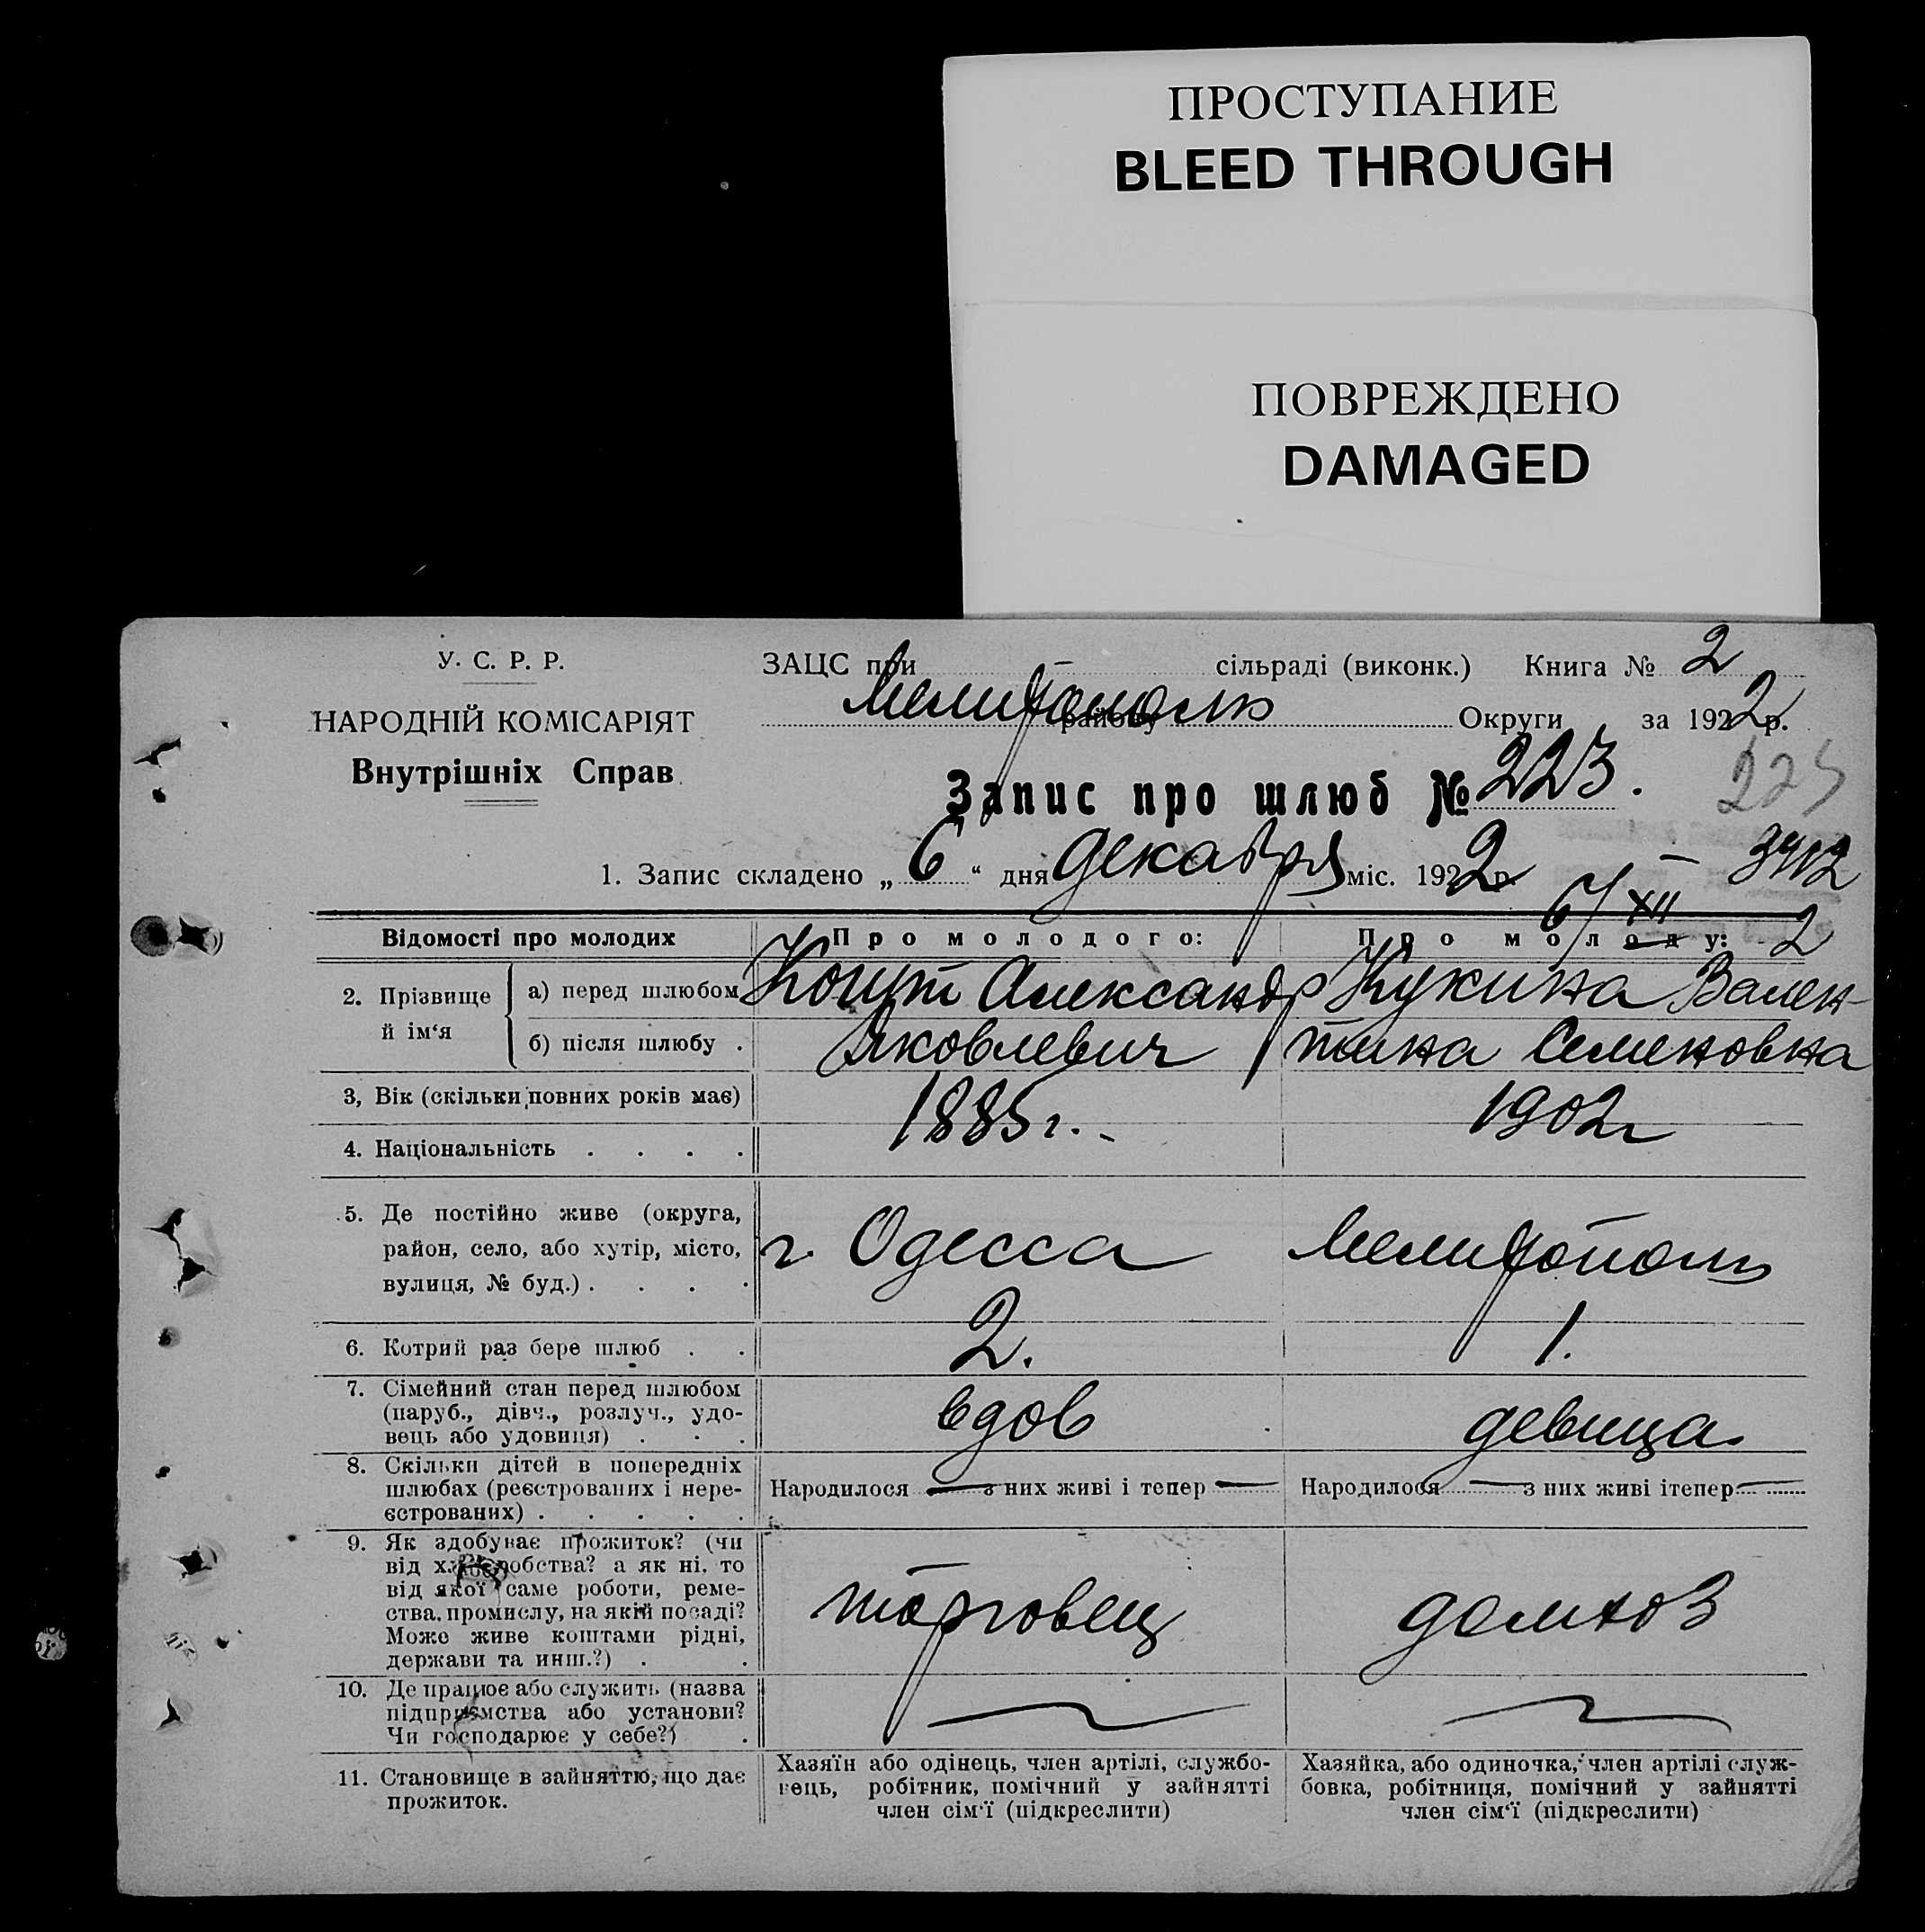 ПРОСТУПАНИЕ
BLEED THROUGH
ПОВРЕЖДЕНО
DAMAGED
У. С. Р. Р.
НАРОДНІЙ КОМІСАРІЯТ
Внутрішніх Справ
ЗАЦС при сільраді (виконк.) Книга № 2
Мелитополь району Округи за 1922 р.
Запис про шлюб № 223.
223
1. Запис складено „ 6 “ дня декабря міс. 1922 р.
6/XII 2
Відомості про молодих
Про молодого:
Про молоду:
2. Прізвище й ім‘я
а) перед шлюбом
б) після шлюбу .
Александр
Яковлевич
Кукина Вален-
тина Семеновна
3, Вік (скільки повних років має)
1885 г.
1902 г
4. Національність . . . .
5. Де постійно живе (округа,
район, село, або хутір, місто,
вулиця, № буд.) . . . .
г. Одесса
Мелитополь
6. Котрий раз бере шлюб . .
2.
1.
7. Сімейний стан перед шлюбом
(паруб., дівч., розлуч., удо-
вець або удовиця) . . .
вдов
девица.
8. Скільки дітей в попередніх
шлюбах (реєстрованих і нере-
єстрованих) . . . . .
Народилося — з них живі і тепер —
Народилося — з них живі ітепер —
9. Як здобуває прожиток? (чи
від хліборобства? а як ні, то
від якої саме роботи, реме-
ства, промислу, на якій посаді?
Може живе коштами рідні,
держави та инш.?) . .
торговец
домхоз
10. Де працює або служить (назва
підприємства або установи?
Чи господарює у себе?) .
11. Становище в зайняттю, що дає
прожиток.
Хазяїн або одінець, член артілі, службо-
вець, робітник, помічний у зайнятті
член сім‘ї (підкреслити)
Хазяйка, або одиночка, член артілі служ-
бовка, робітниця, помічний у зайнятті
член сім‘ї (підкреслити)